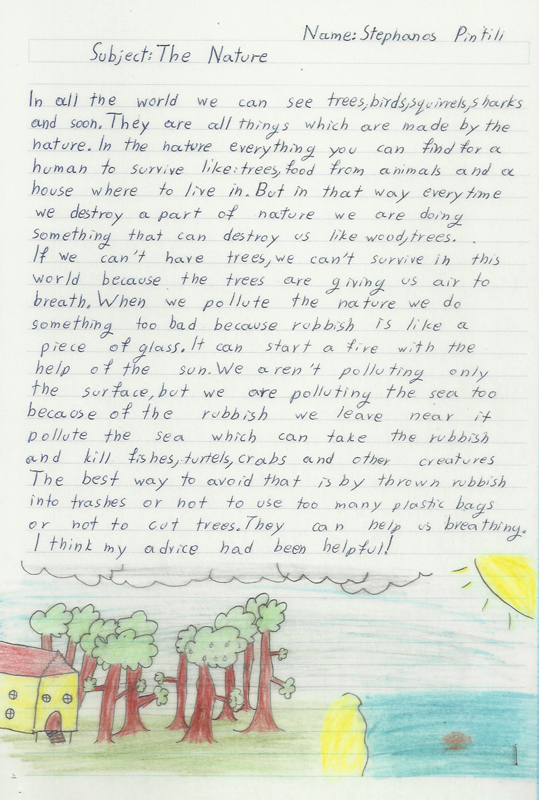 Name: Stephanos Pintili
Subject: The Nature
In all the world we can see trees,birds,squirrels,sharks
and soon. They are all things which are made by the
nature. In the nature everything you can find for a
human to survive like: trees, food from animals and a
house where to live in. But in that way everytime
we destroy a part of nature we are doing
something that can destroy us like wood, trees.
If we can't have trees, we can't survive in this
world because the trees are giving us air to
breath. When we pollute the nature we do
something too bad because rubbish is like a
piece of glass. It can start a fire with the
help of the sun. We aren't polluting only
the surface, but we are polluting the sea too
because of the rubbish we leave near it
pollute the sea which can take the rubbish
and kill fishes, turtels, crabs and other creatures
The best way to avoid that is by thrown rubbish
into trashes or not to use too many plastic bags
or not to cut trees. They can help us breathing.
I think my advice had been helpful!